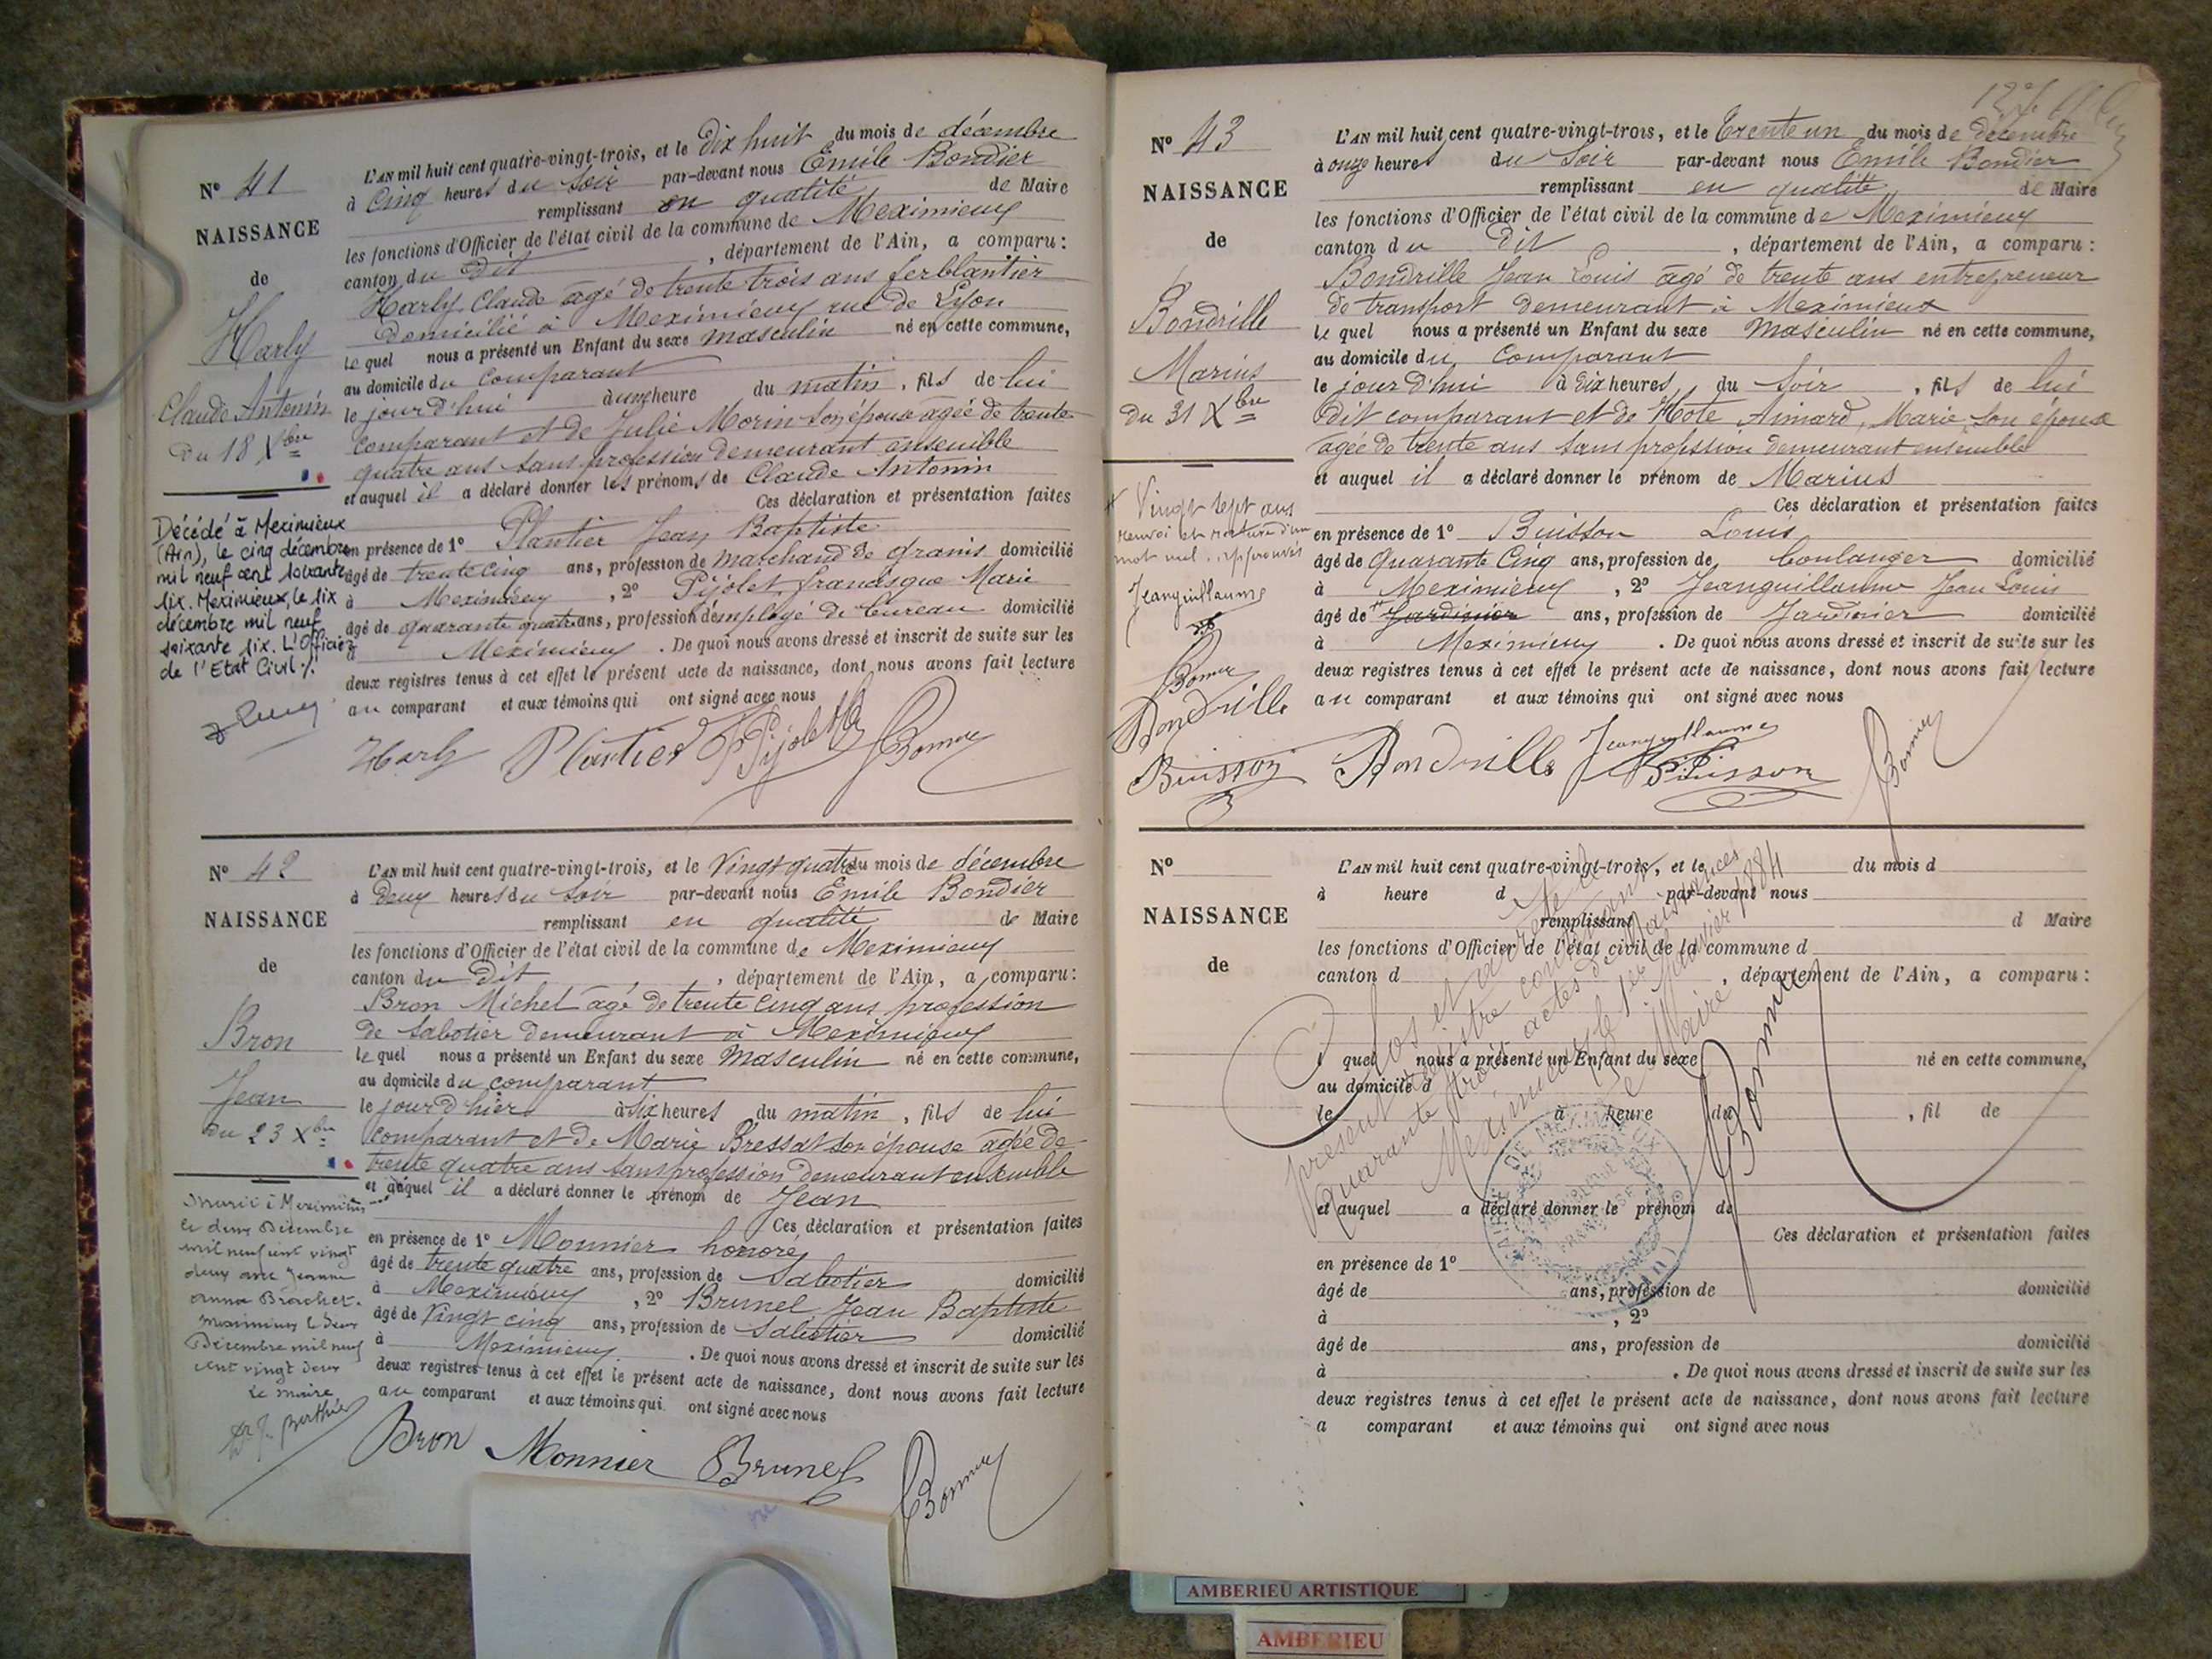 N° 41
NAISSANCE
de
Harly
Claude Antonin
Du 18 Xbre
Décédé à Meximieux
(Ain), le cinq décembre
mil neuf cent soixante
six. Meximieux, le six
décembre mil neuf
soixante six. L'Officier
de l'Etat Civil ./.
L'AN mil huit cent quatre-vingt-trois, et le Dix huit du mois de décembre
à Cinq heures du Soir par-devant nous Emile Bondier
remplissant en qualité de Maire
les fonctions d'Officier de l'état civil de la commune de Meximieux
canton du Dit, département de l'Ain, a comparu:
Harly Claude âgé de trente trois ans ferblantier
Domicilié à Meximieux rue de Lyon
lequel nous a présenté un Enfant du sexe masculin né en cette commune,
au domicile du Comparant
le jour d'hui à une heure du matin, fils de lui
Comparant et de Julie Morin son épouse agée de trente
quatre ans sans profession Demeurant ensemble
et auquel il a déclaré donner les prénoms de Claude Antonin
Ces déclaration et présentation faites
en présence de 1° Plantier Jean Baptiste
âgé de trente Cinq ans, profession de Marchand de grains domicilié
à Meximieux, 2° Pijolet francisque Marie
âgé de quarante quatre ans, profession d'employé de bureau domicilié
à Meximieux. De quoi nous avons dressé et inscrit de suite sur les
deux registres tenus à cet effet le présent acte de naissance, dont nous avons fait lecture
au comparant et aux témoins qui ont signé avec nous
Harly Plantier Pijolet
N° 42
NAISSANCE
de
Bron
Jean
Du 23 Xbre
Marié à Meximieux
le deux Décembre
mil neuf cent vingt
deux avec Jeanne
Anna Brachet.
Meximieux le deux
Décembre mil neuf
cent vingt deux
Le maire
Berthier
L'AN mil huit cent quatre-vingt-trois, et le Vingt quatre du mois de décembre
à Deux heures du Soir par-devant nous Emile Bondier
remplissant en qualité de Maire
les fonctions d'Officier de l'état civil de la commune de Meximieux
canton du Dit, département de l'Ain, a comparu:
Bron Michel âgé de trente Cinq ans profession
de Sabotier Demeurant à Meximieux
lequel nous a présenté un Enfant du sexe Masculin né en cette commune,
au domicile du comparant
le jour d'hier à Six heures du matin, fils de lui
Comparant et de Marie Bressat son épouse agée de
trente quatre ans sans profession Demeurant ensemble
et auquel il a déclaré donner le prénom de Jean
Ces déclaration et présentation faites
en présence de 1° Monnier honoré
âgé de trente quatre ans, profession de Sabotier domicilié
à Meximieux, 2° Brunel Jean Baptiste
âgé de Vingt cinq ans, profession de Sabotier domicilié
à Meximieux. De quoi nous avons dressé et inscrit de suite sur les
deux registres tenus à cet effet le présent acte de naissance, dont nous avons fait lecture
au comparant et aux témoins qui ont signé avec nous
Bron Monnier Brunel
N° 43
NAISSANCE
de
Bondrille
Marius
Du 31 Xbre
+ Vingt sept ans
renvoi et rature d'un
mot nul. approuvés
Jeanguillaume
Bondrille
Buisson
L'AN mil huit cent quatre-vingt-trois, et le Trente un du mois de Décembre
à onze heures du Soir par-devant nous Emile Bondier
remplissant en qualité de Maire
les fonctions d'Officier de l'état civil de la commune de Meximieux
canton du Dit, département de l'Ain, a comparu:
Bondrille Jean Louis âgé de trente ans entrepreneur
de transport Demeurant à Meximieux
lequel nous a présenté un Enfant du sexe Masculin né en cette commune,
au domicile du Comparant
le jour d'hui à dix heures du Soir, fils de lui
Dit comparant et de Hote Aimard, Marie, son épouse
agée de trente ans sans profession demeurant ensemble
et auquel il a déclaré donner le prénom de Marius
Ces déclaration et présentation faites
en présence de 1° Buisson Louis
âgé de Quarante Cinq ans, profession de boulanger domicilié
à Meximieux, 2° Jeanguillaume Jean Louis
âgé de + Jardinier ans, profession de Jardinier domicilié
à Meximieux. De quoi nous avons dressé et inscrit de suite sur les
deux registres tenus à cet effet le présent acte de naissance, dont nous avons fait lecture
au comparant et aux témoins qui ont signé avec nous
Bondrille Jeanguillaume Buisson
N°
NAISSANCE
de
L'AN mil huit cent quatre-vingt-trois, et le du mois d
à heure d par-devant nous
remplissant d Maire
les fonctions d'Officier de l'état civil de la commune d
canton d, département de l'Ain, a comparu:
l quel nous a présenté un Enfant du sexe né en cette commune,
au domicile d
le à heure du, fil de
et auquel a déclaré donner le prénom de
Ces déclaration et présentation faites
en présence de 1°
âgé de ans, profession de domicilié
à, 2°
âgé de ans, profession de domicilié
à. De quoi nous avons dressé et inscrit de suite sur les
deux registres tenus à cet effet le présent acte de naissance, dont nous avons fait lecture
a comparant et aux témoins qui ont signé avec nous
Clos et arrêté le
présent registre contenant
Quarante trois actes de Naissances
Meximieux le 1er Janvier 1884
Le Maire
MAIRIE DE MEXIMIEUX
RÉPUBLIQUE FRANÇAISE
(AIN)
AMBERIEU ARTISTIQUE
AMBERIEU